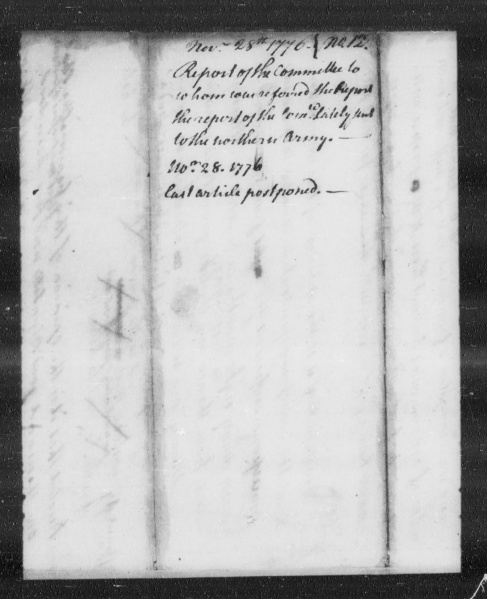 Nov.r 28th 1776 { No 12.
Report of the Committee to
whom was referred the Report
the report of the Com.tee lately sent
to the northern Army. —
Nov.r 28. 1776
last article postponed. —